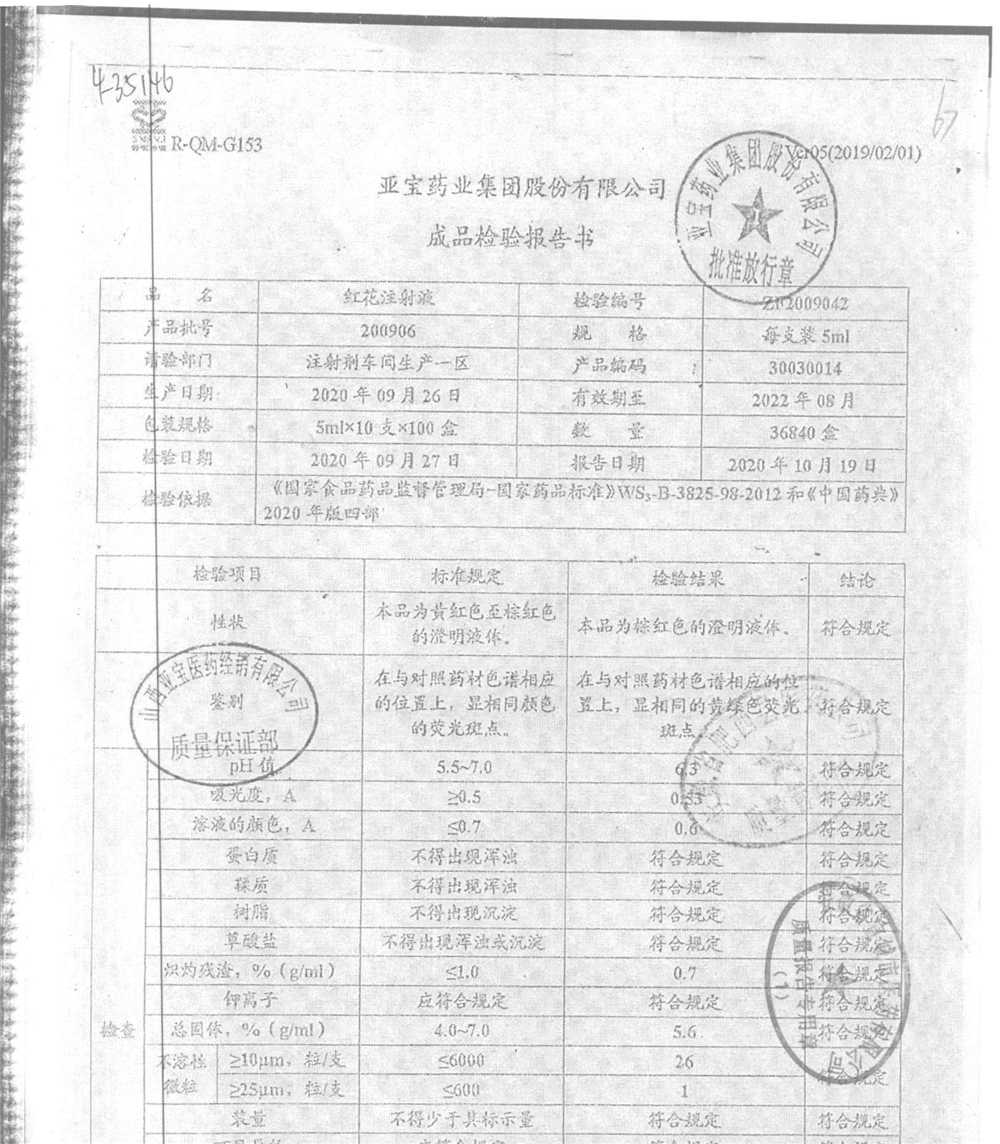 435146
R-QM-G153
Ver05(2019/02/01)
亚宝药业集团股份有限公司
成品检验报告书
亚宝药业集团股份有限公司
批准放行章
品 名 红花注射液 检验编号 ZP2009042
产品批号 200906 规 格 每支装 5ml
请验部门 注射剂车间生产一区 产品编码 30030014
生产日期 2020 年 09 月 26 日 有效期至 2022 年 08 月
包装规格 5ml×10 支×100 盒 数 量 36840 盒
检验日期 2020 年 09 月 27 日 报告日期 2020 年 10 月 19 日
检验依据 《国家食品药品监督管理局-国家药品标准》WS3-B-3825-98-2012 和《中国药典》
2020 年版四部
检验项目 标准规定 检验结果 结论
性状 本品为黄红色至棕红色
的澄明液体。 本品为棕红色的澄明液体。 符合规定
山西亚宝医药经销有限公司
质量保证部
鉴别 在与对照药材色谱相应
的位置上，显相同颜色
的荧光斑点。 在与对照药材色谱相应的位
置上，显相同的黄绿色荧光
斑点 符合规定
检查
pH 值 5.5~7.0 6.3 符合规定
吸光度，A ≥0.5 0.53 符合规定
溶液的颜色，A ≤0.7 0.6 符合规定
蛋白质 不得出现浑浊 符合规定 符合规定
鞣质 不得出现浑浊 符合规定 符合规定
树脂 不得出现沉淀 符合规定 符合规定
草酸盐 不得出现浑浊或沉淀 符合规定 符合规定
炽灼残渣，%（g/ml） ≤1.0 0.7 符合规定
钾离子 应符合规定 符合规定 符合规定
总固体，%（g/ml） 4.0~7.0 5.6 符合规定
不溶性
微粒 ≥10μm，粒/支 ≤6000 26 符合规定
≥25μm，粒/支 ≤600 1
装量 不得少于其标示量 符合规定 符合规定
质量报告专用章
(1)